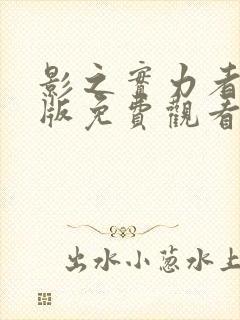 影之實力者
版免費觀看
出水小葱水上